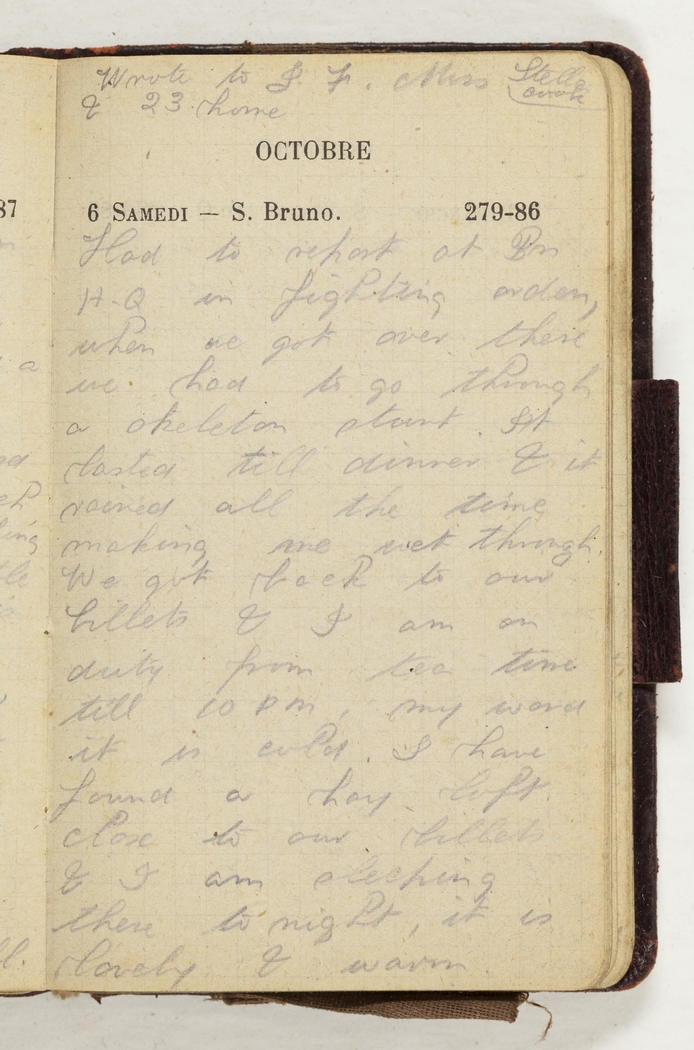 Wrote to J. F. Miss Stella
& 23. home
OCTOBRE
87
6 SAMEDI — S. Bruno. 279-86
Had to report at Bn
H-Q in fighting order,
when we got over there
we had to go through
a skeleton stunt. It
lasted till dinner & it
rained all the time
making me wet through.
We got back to our
billets & I am on
duty from tea time
till 10 PM, my word
it is cold. I have
found a hay loft
close to our billets
& I am sleeping
there to night, it is
lovely & warm.